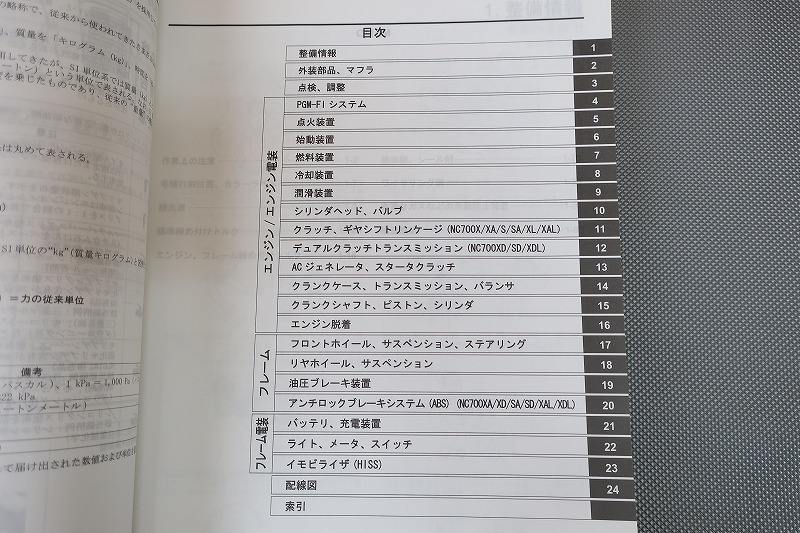 の略称で、従来から使われてきた
、質量を「キログラム (kg)」
用してきたが、SI 単位系では質量 (k
ートン」という単位で表される。
を乗じたものであり、従来の
は丸めて表される。
SI 単位の"kg"(質量キログラム)と
) =力の従来単位
備考
パスカル)、1 kPa = 1,000 Pa
22 kPa
ートンメートル)
て届け出された数値および
1. 整備情報
目次
整備情報 1
外装部品、マフラ 2
点検、調整 3
エンジン/エンジン電装
PGM-FI システム 4
点火装置 5
始動装置 6
燃料装置 7
冷却装置 8
潤滑装置 9
シリンダヘッド、バルブ 10
クラッチ、ギヤシフトリンケージ (NC700X/XA/S/SA/XL/XAL) 11
デュアルクラッチトランスミッション (NC700XD/SD/XDL) 12
AC ジェネレータ、スタータクラッチ 13
クランクケース、トランスミッション、バランサ 14
クランクシャフト、ピストン、シリンダ 15
エンジン脱着 16
フレーム
フロントホイール、サスペンション、ステアリング 17
リヤホイール、サスペンション 18
油圧ブレーキ装置 19
アンチロックブレーキシステム (ABS) (NC700XA/XD/SA/SD/XAL/XDL) 20
フレーム電装
バッテリ、充電装置 21
ライト、メータ、スイッチ 22
イモビライザ (HISS) 23
配線図 24
索引